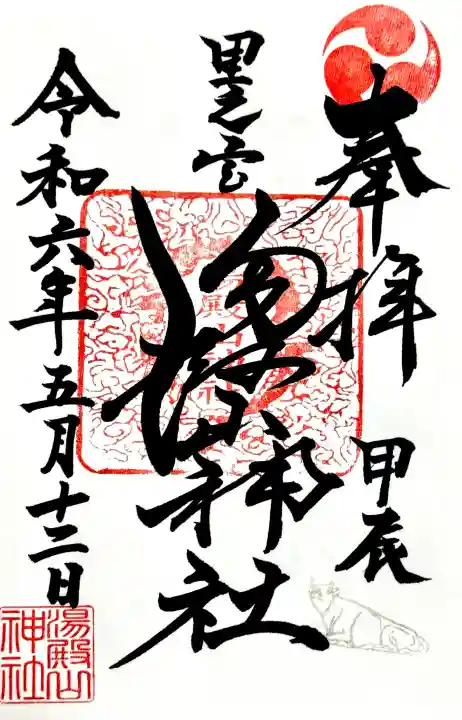 奉拝
甲辰
里之宮
湯殿山神社
令和六年五月十二日
湯殿山
神社